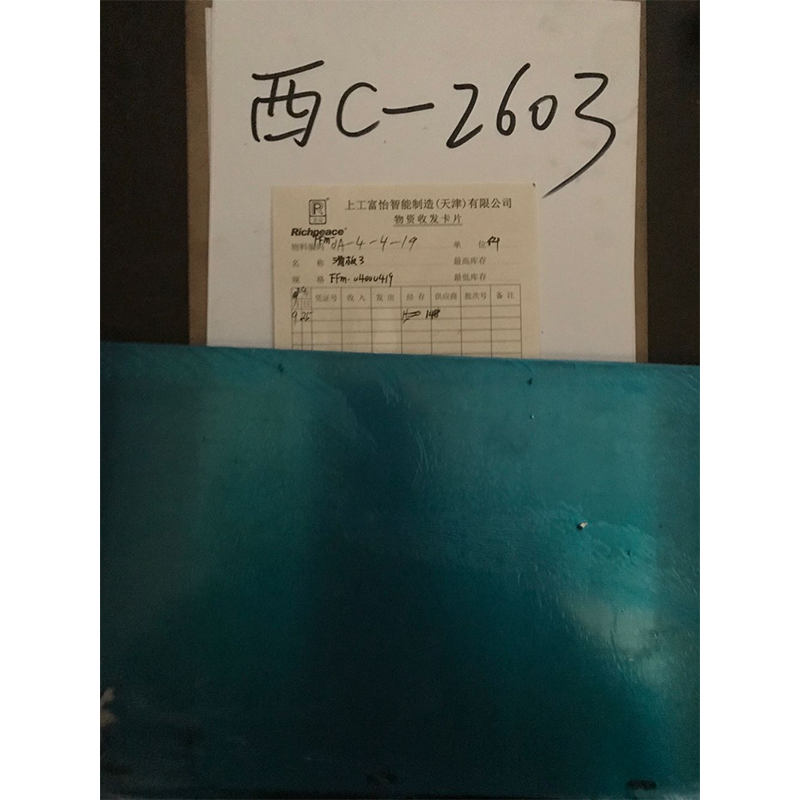 西C-2603
上工富怡智能制造(天津)有限公司
物资收发卡片
Richpeace
物料编码 FFm-JA-4-4-19 单 位
名 称 滑板3 最高库存
规 格 FFm-0400419 最低库存
凭证号 收入 发出 结存 供应商 批次号 备注
9 25 148